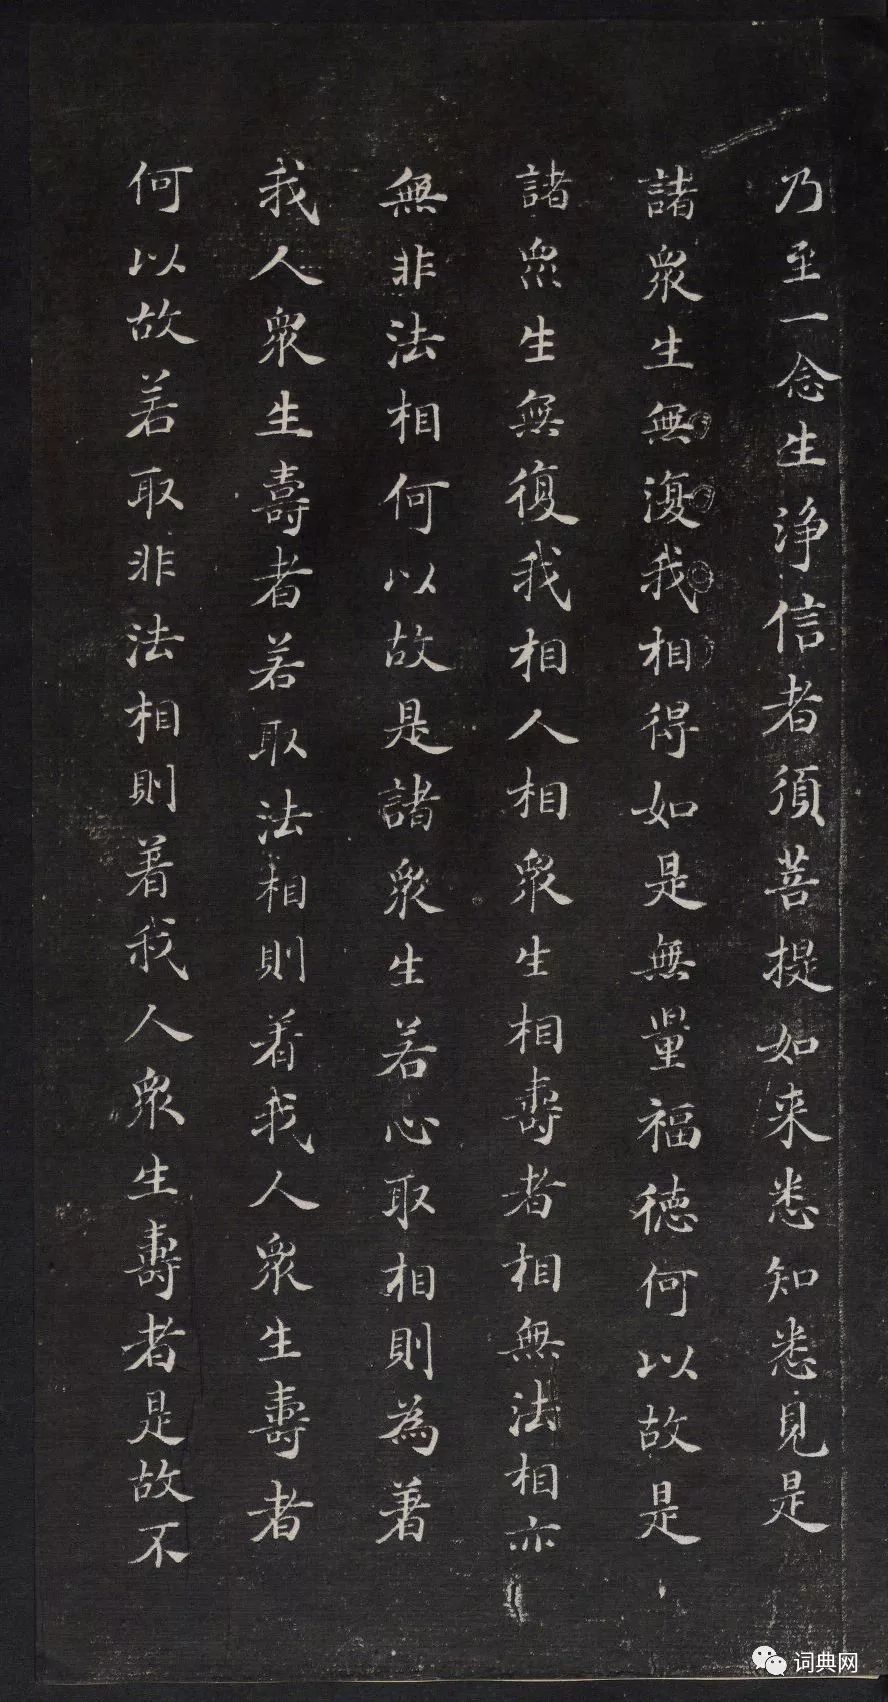 乃至一念生淨信者須菩提如来悉知悉見是
諸衆生無復我相得如是無量福德何以故是
諸衆生無復我相人相衆生相壽者相無法相亦
無非法相何以故是諸衆生若心取相則為著
我人衆生壽者若取法相則着我人衆生壽者
何以故若取非法相則着我人衆生壽者是故不
词典网